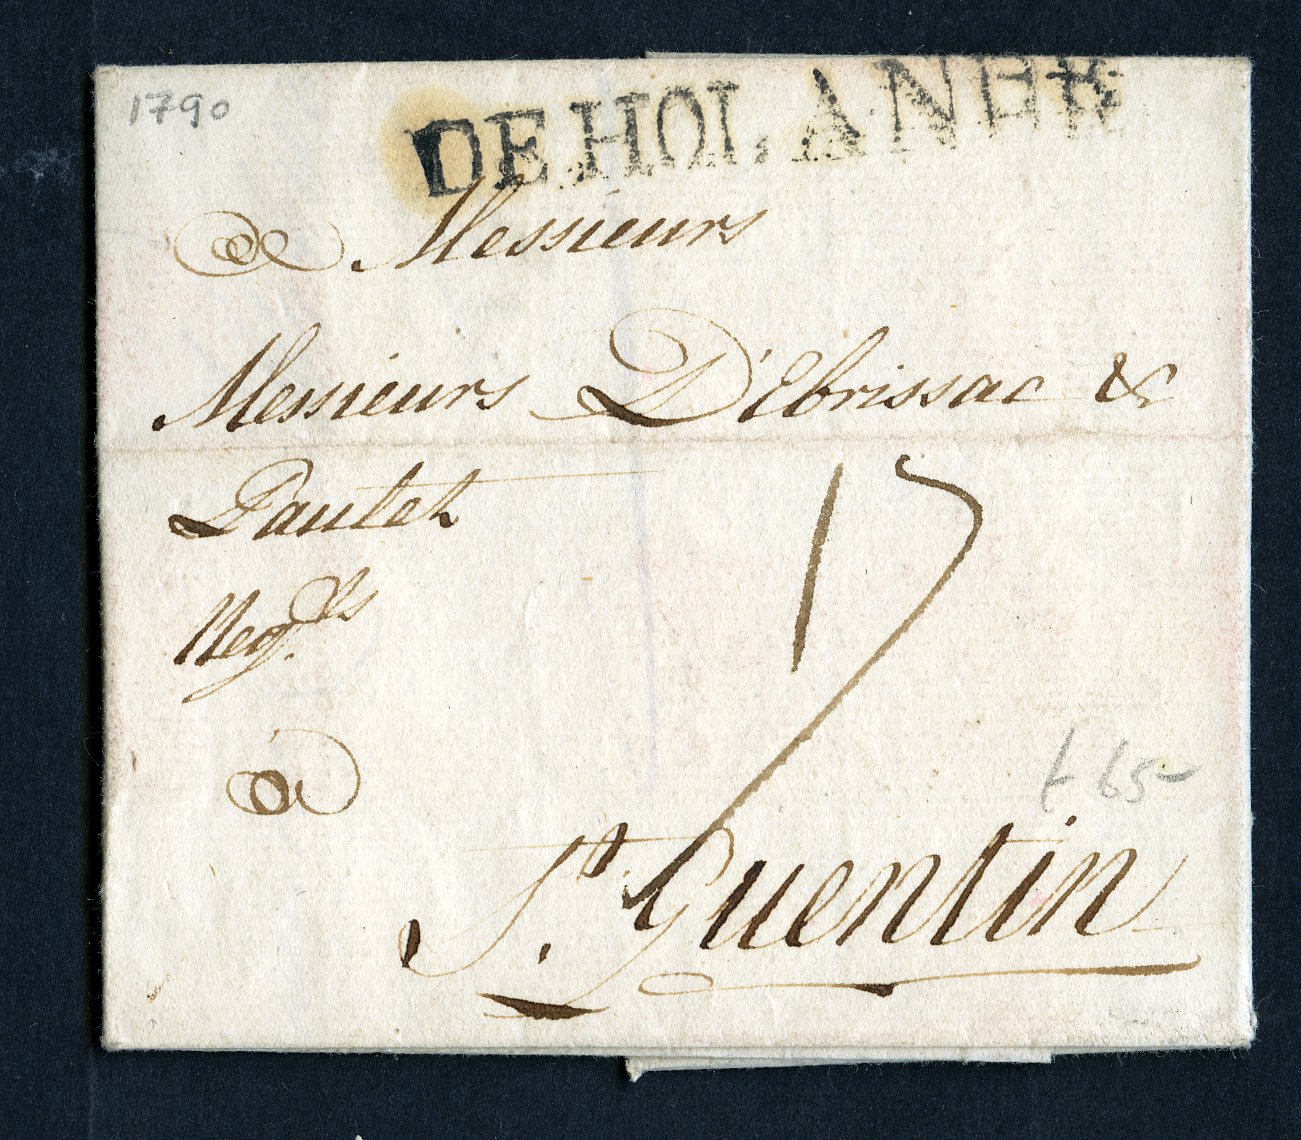 1790
DE HOLANDE
A Messieurs
Messieurs D'Ebrissac &
Pautet
Neg.ts
17
a
f 65-
St. Quentin